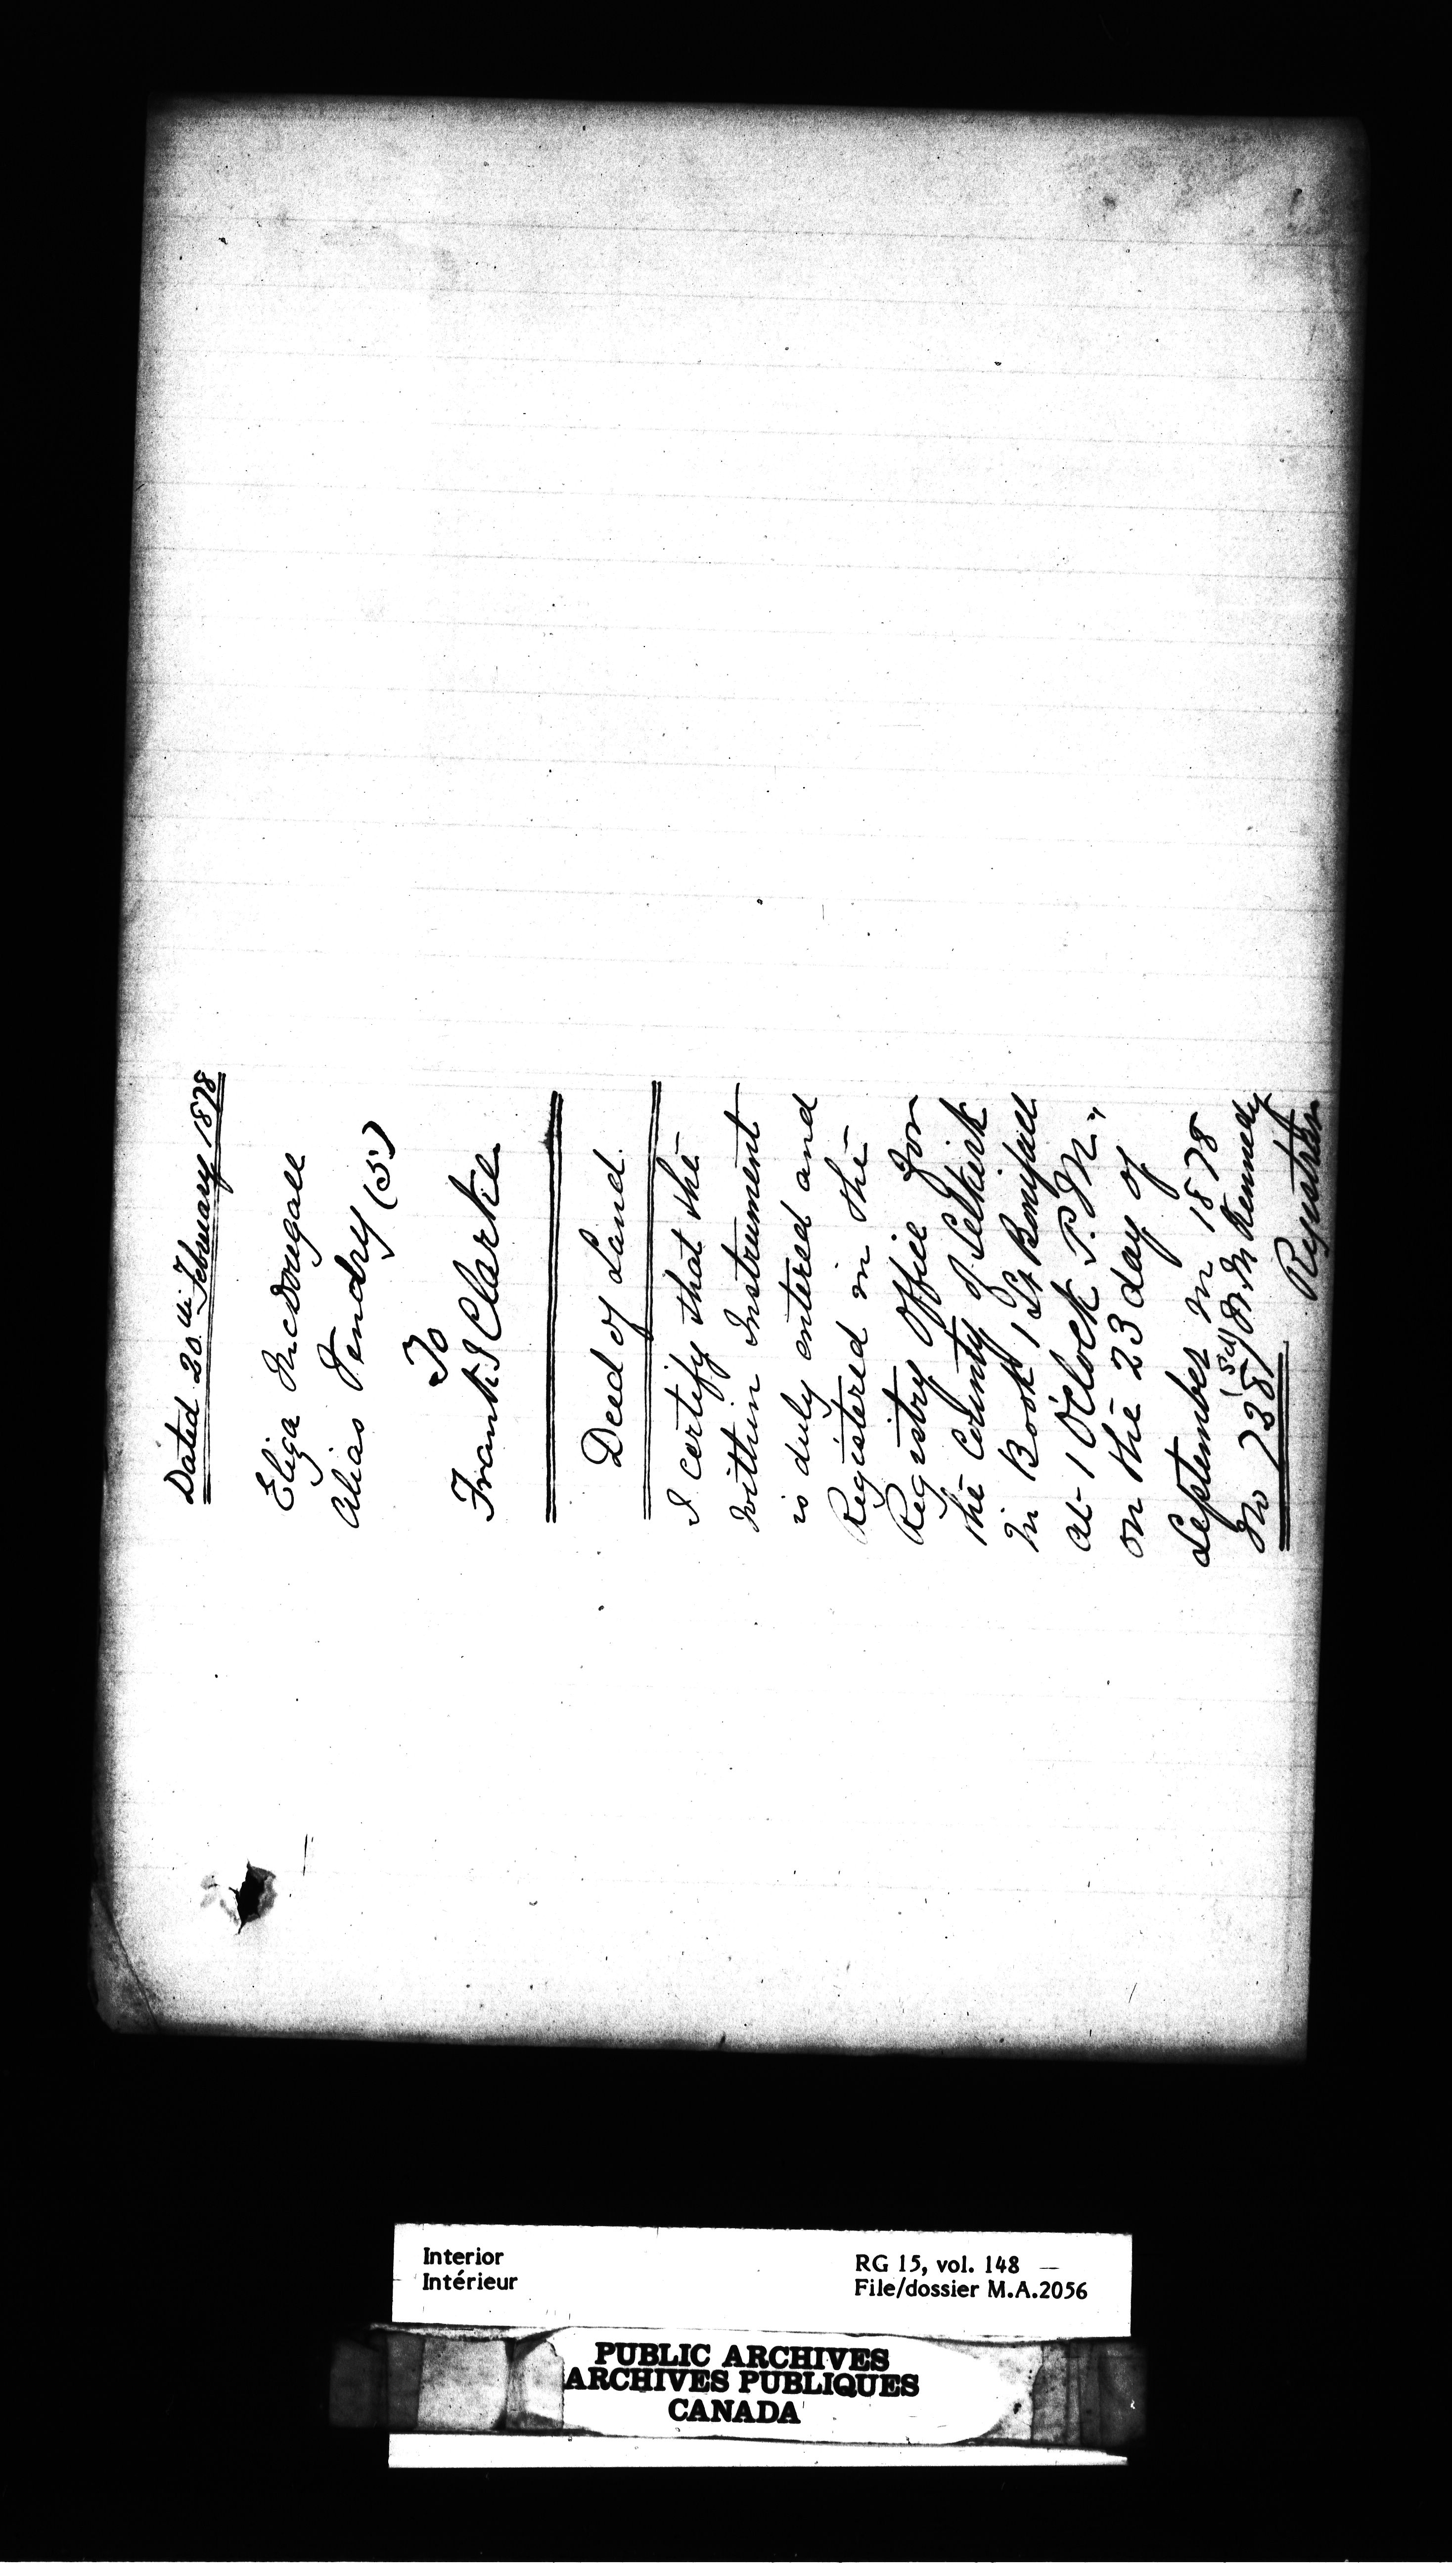 Dated 20th February 1878
Eliza McDougall
Alias Fendry (5)
To
Frank I Clarke
Deed of Land
I certify that the
within Instrument
is duly entered and
Registered in the
Registry Office for
the County of Selkirk
in Book 1 St Boniface
at 1 O'clock P.M.
on the 23 day of
September in 1878
No 2387 W. N. Kennedy
Registrar
Interior
Intérieur
RG 15, vol. 148 —
File/dossier M.A.2056
PUBLIC ARCHIVES
ARCHIVES PUBLIQUES
CANADA